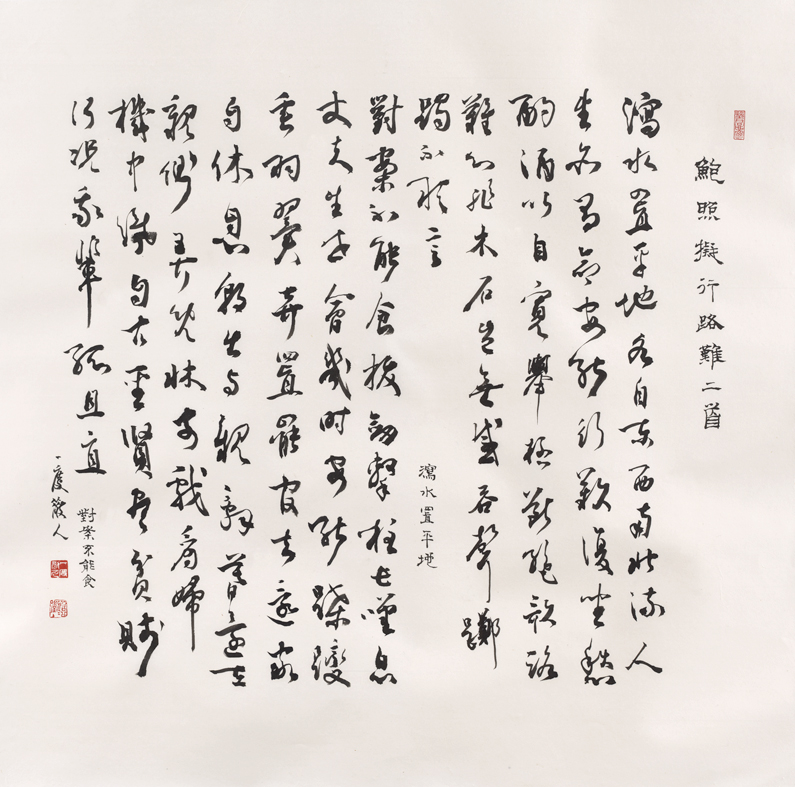 鮑照擬行路難二首
瀉水置平地各自東西南北流人
生亦有命安能行歎復坐愁
酌酒以自寬舉杯斷絕歌路
難心非木石豈無感吞聲躑
躅不敢言
瀉水置平地
對案不能食拔劍擊柱長嘆息
丈夫生世會幾時安能蹀躞
垂羽翼棄置罷官去還家
自休息朝出與親辭暮還在
親側弄兒牀前戲看婦
機中織自古聖賢盡貧賤
何況我輩孤且直
對案不能食